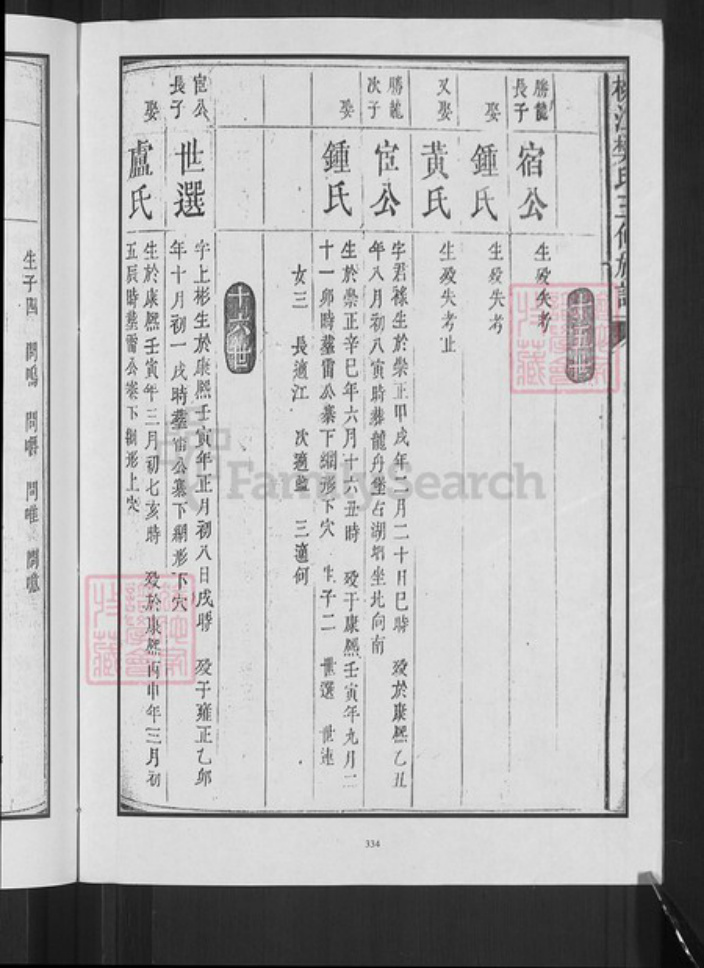 十五世
勝龍長子
宿公
生歿失考
娶
鍾氏
生歿失考
又娶
黃氏
生歿失考止
勝龍次子
宦公
字君祿生於崇正甲戌年二月二十日巳時 歿於康熙乙丑
年八月初八寅時葬龍舟堡占湖塘坐北向南
娶
鍾氏
生於崇正辛巳年六月十六丑時 歿于康熙壬寅年九月二
十一卯時塟雷公寨下綱形下穴 生子二 世選 世連
女三 長適江 次適藍 三適何
十六世
宦公長子
世選
字上彬生於康熙壬寅年正月初八日戌時 歿于雍正乙卯
年十月初一戌時塟雷公寨下綱形下穴
娶
盧氏
生於康熙壬寅年三月初七亥時 歿於康熙丙申年三月初
五辰時塟雷公寨下綱形上穴
生子四 問鳴 問嚼 問唯 問噫
334
FamilySearch